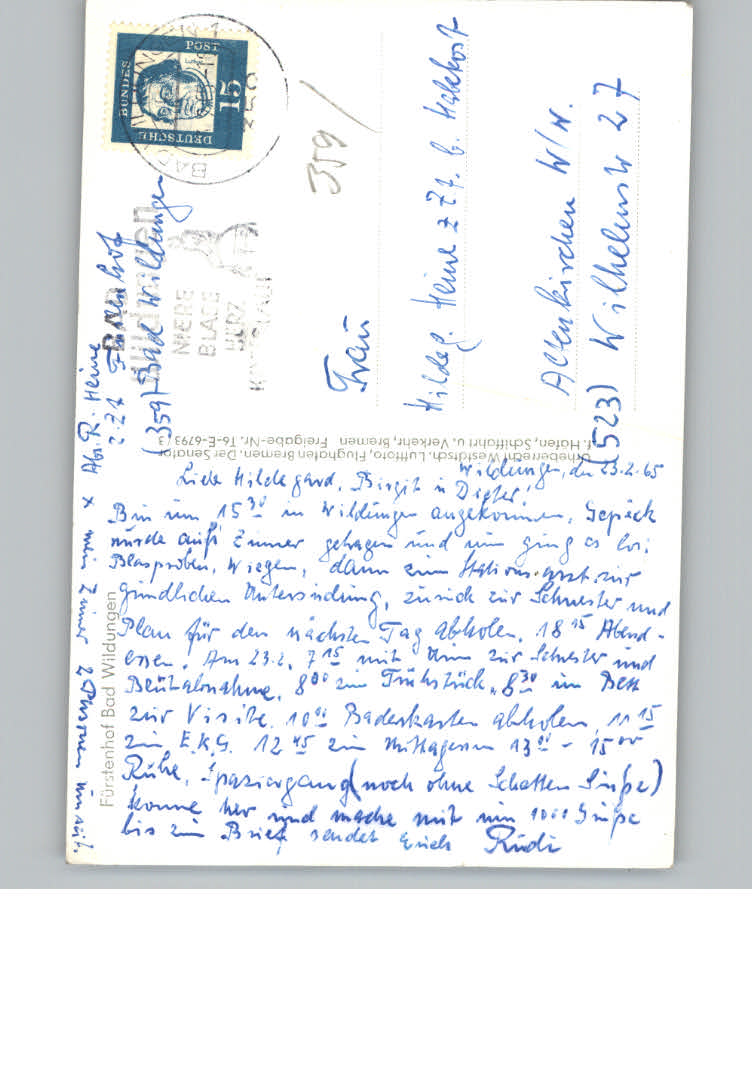 DEUTSCHE
BUNDES
POST
15
BAD WILDUNGEN
359
Bad
Wildungen
NIERE
BLASE
HERZ
Abs. R. Heine
z. Zt. Fürstenhof
(359) Bad Wildungen
359/
Frau
Hildeg. Heine z Zt. b. Halxhost
Altenkirchen W/W.
(523) Wilhelmstr 27
Urheberrecht Westdtsch. Luftfoto, Flughafen Bremen. Der Senator
f. Häfen, Schiffahrt u. Verkehr, Bremen Freigabe-Nr. T6-E-6793/3
Fürstenhof Bad Wildungen
Wildungen, den 23.2.65
Liebe Hildegard, Birgit u Dieter!
Bin um 15³⁰ in Wildungen angekommen, Gepäck
wurde aufs Zimmer getragen und nun ging es los:
Blasproben, Wiegen, dann zum Stationsarzt zur
gründlichen Untersuchung, zurück zur Schwester und
Plan für den nächsten Tag abholen. 18¹⁵ Abend-
essen. Am 23.2. 7¹⁵ mit Urin zur Schwester und
Blutabnahme, 8⁰⁰ zum Frühstück, 8³⁰ im Bett
zur Visite. 10⁰⁰ Badeskarten abholen, 11¹⁵
zum E.K.G. 12⁴⁵ zum Mittagessen 13⁰⁰ - 15⁰⁰
Ruhe, Spaziergang (noch ohne Schatten Grüße)
komme her und mache mit nun 1000 Grüße
bis zum Brief sendet Euch Rudi
x mein Zimmer 2 Personen